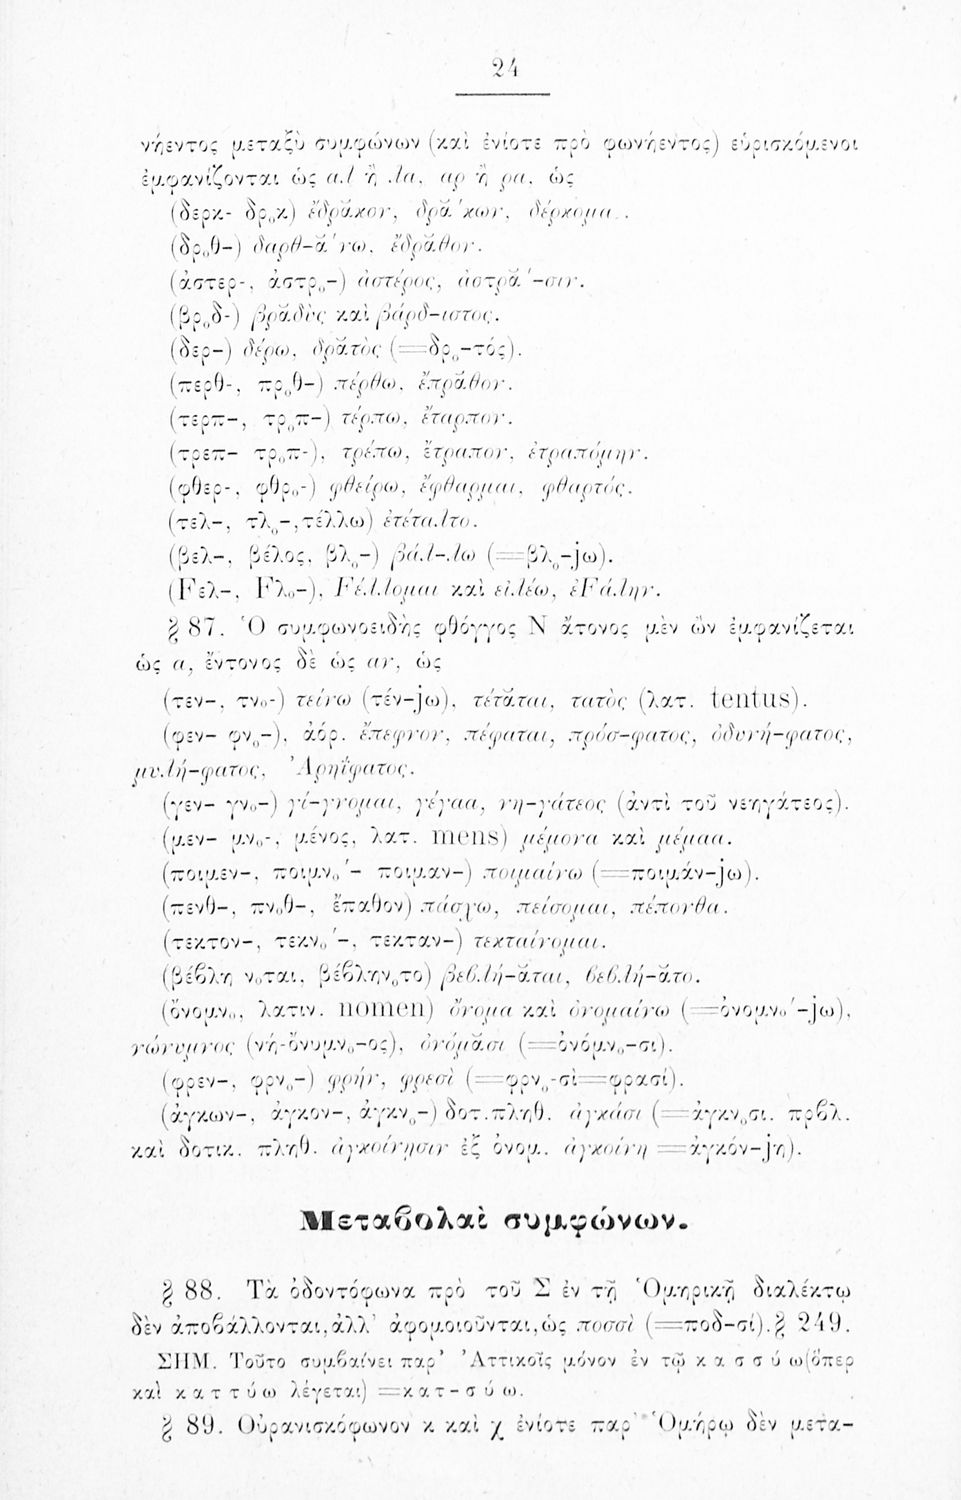 24
νήεντος μεταξὺ συμφώνων (καὶ ἐνίοτε πρὸ φωνήεντος) εὑρισκόμενοι
ἐμφανίζονται ὡς αλ ἢ λα, αρ ἢ ρα, ὡς
(δερκ- δρₒκ) ἔδρᾰκον, δρᾰ́κων, δέρκομαι.
(δρₒθ-) δαρθ-ᾰ́νω, ἔδρᾰθον.
(ἀστερ-, ἀστρₒ-) ἀστέρος, ἀστρᾰ́-σιν.
(βρₒδ-) βρᾰδὺς καὶ βάρδ-ιστος.
(δερ-) δέρω, δρᾰτὸς (=δρₒ-τός).
(περθ-, πρₒθ-) πέρθω, ἔπρᾰθον.
(τερπ-, τρₒπ-) τέρπω, ἔταρπον.
(τρεπ- τρₒπ-), τρέπω, ἔτραπον, ἐτραπόμην.
(φθερ-, φθρₒ-) φθείρω, ἔφθαρμαι, φθαρτός.
(τελ-, τλₒ-,τέλλω) ἐτέταλτο.
(βελ-, βέλος, βλₒ-) βάλ-λω (=βλₒ-jω).
(Fελ-, Fλₒ-), Fέλλομαι καὶ εἰλέω, ἐFάλην.
§ 87. Ὁ συμφωνοειδὴς φθόγγος Ν ἄτονος μὲν ὢν ἐμφανίζεται
ὡς α, ἔντονος δὲ ὡς αν, ὡς
(τεν-, τνₒ-) τείνω (τέν-jω), τέτᾰται, τατὸς (λατ. tentus).
(φεν- φνₒ-), ἀόρ. ἔπεφνον, πέφαται, πρόσ-φατος, ὀδυνή-φατος,
μυλή-φατος, Ἀρηΐφατος.
(γεν- γνₒ-) γί-γνομαι, γέγαα, νη-γάτεος (ἀντὶ τοῦ νεηγάτεος).
(μεν- μνₒ-, μένος, λατ. mens) μέμονα καὶ μέμαα.
(ποιμεν-, ποιμνₒ́- ποιμαν-) ποιμαίνω (=ποιμάν-jω).
(πενθ-, πνₒθ-, ἔπαθον) πάσχω, πείσομαι, πέπονθα.
(τεκτον-, τεκνₒ́-, τεκταν-) τεκταίνομαι.
(βέβλη νₒται, βέβληνₒτο) βεβλή-ᾰται, βεβλή-ᾰτο.
(ὄνομνₒ, λατιν. nomen) ὄνομα καὶ ὀνομαίνω (=ὀνομνₒ́-jω),
νώνυμνος (νή-ὄνυμνₒ-ος), ὀνόμᾰσι (=ὀνόμνₒ-σι).
(φρεν-, φρνₒ-) φρήν, φρεσὶ (=φρνₒ-σὶ=φρασί).
(ἀγκων-, ἀγκον-, ἀγκνₒ-) δοτ.πληθ. ἀγκάσι (=ἀγκνₒσι. πρβλ.
καὶ δοτικ. πληθ. ἀγκοίνησιν ἐξ ὀνομ. ἀγκοίνη =ἀγκόν-jη).
Μεταβολαὶ συμφώνων.
§ 88. Τὰ ὀδοντόφωνα πρὸ τοῦ Σ ἐν τῇ Ὁμηρικῇ διαλέκτῳ
δὲν ἀποβάλλονται,ἀλλ' ἀφομοιοῦνται,ὡς ποσσὶ (=ποδ-σί).§ 249.
ΣΗΜ. Τοῦτο συμβαίνει παρ' Ἀττικοῖς μόνον ἐν τῷ κασσύω(ὅπερ
καὶ καττύω λέγεται) =κατ-σύω.
§ 89. Οὐρανισκόφωνον κ καὶ χ ἐνίοτε παρ' Ὁμήρῳ δὲν μετα-